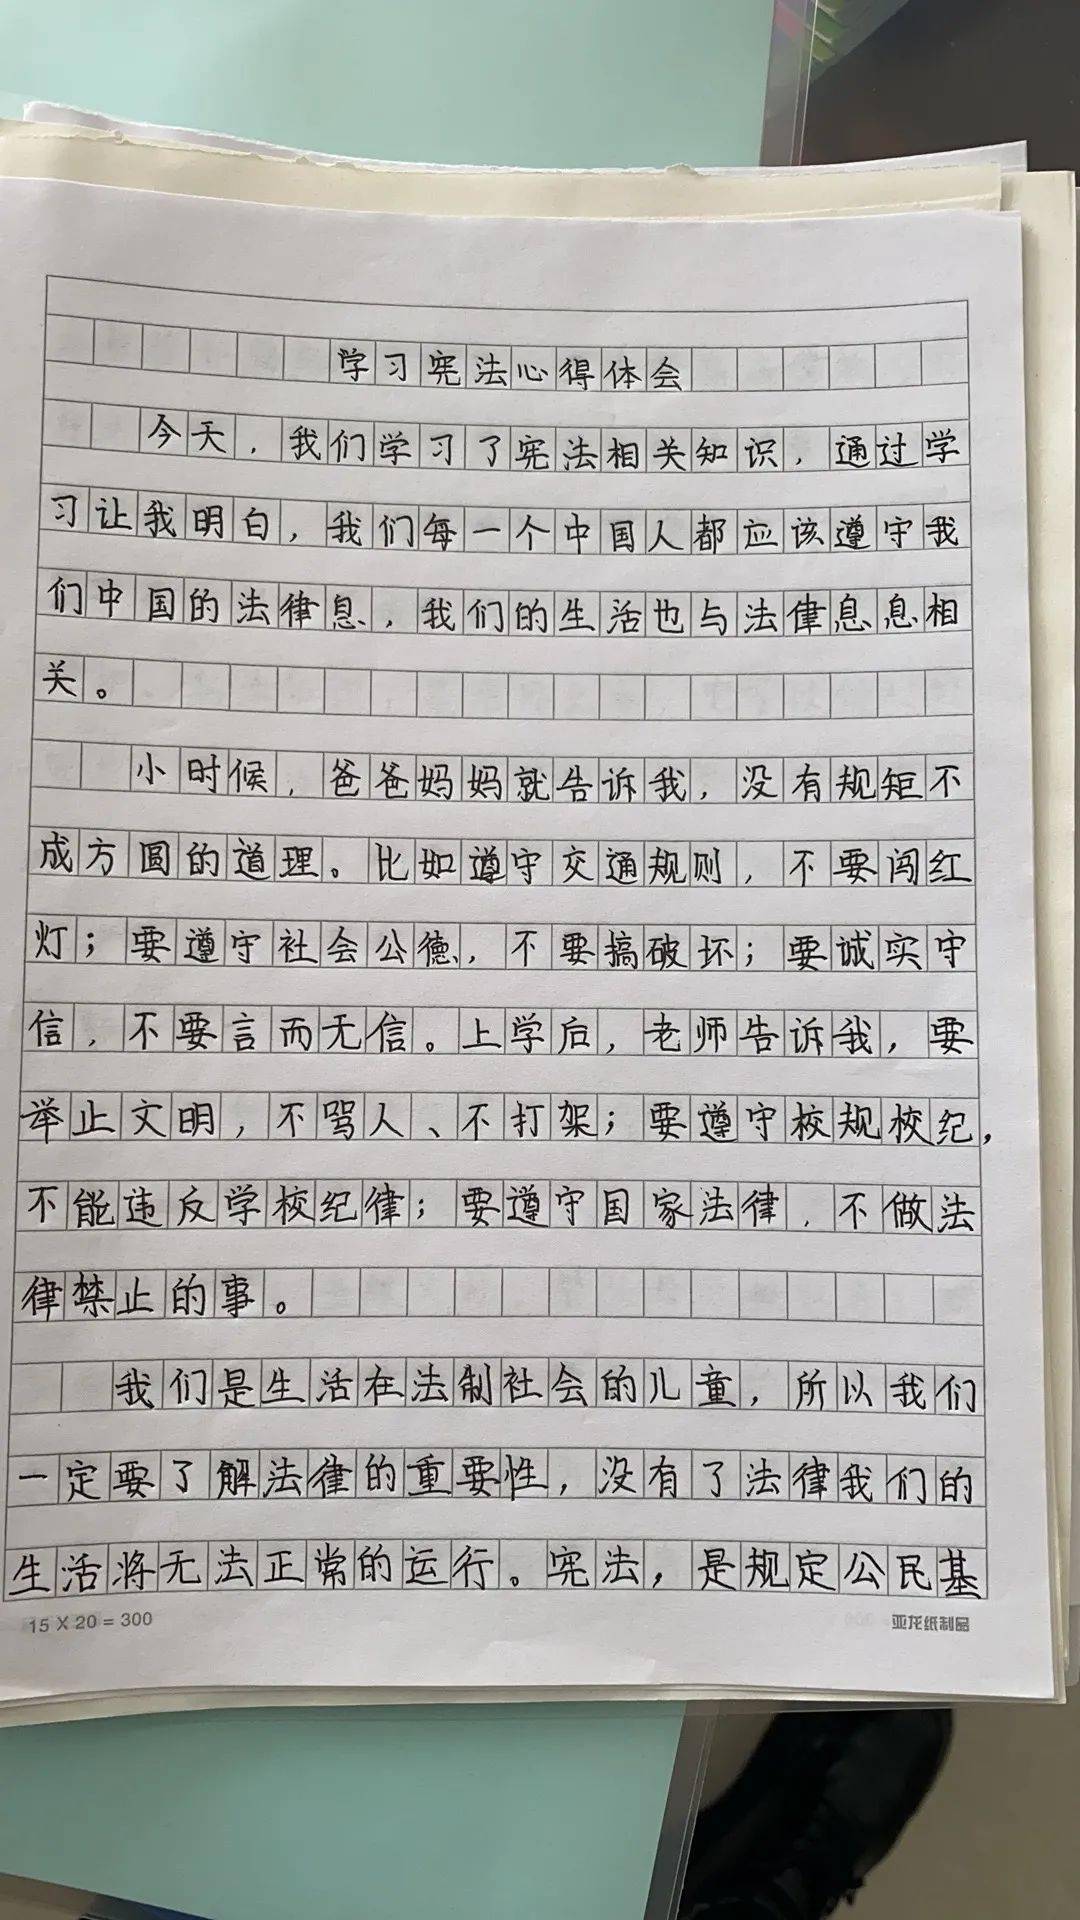 学习宪法心得体会
今天，我们学习了宪法相关知识，通过学
习让我明白，我们每一个中国人都应该遵守我
们中国的法律息，我们的生活也与法律息息相
关。
小时候，爸爸妈妈就告诉我，没有规矩不
成方圆的道理。比如遵守交通规则，不要闯红
灯；要遵守社会公德，不要搞破坏；要诚实守
信，不要言而无信。上学后，老师告诉我，要
举止文明，不骂人、不打架；要遵守校规校纪，
不能违反学校纪律；要遵守国家法律，不做法
律禁止的事。
我们是生活在法制社会的儿童，所以我们
一定要了解法律的重要性，没有了法律我们的
生活将无法正常的运行。宪法，是规定公民基
15 X 20 = 300 亚龙纸制品